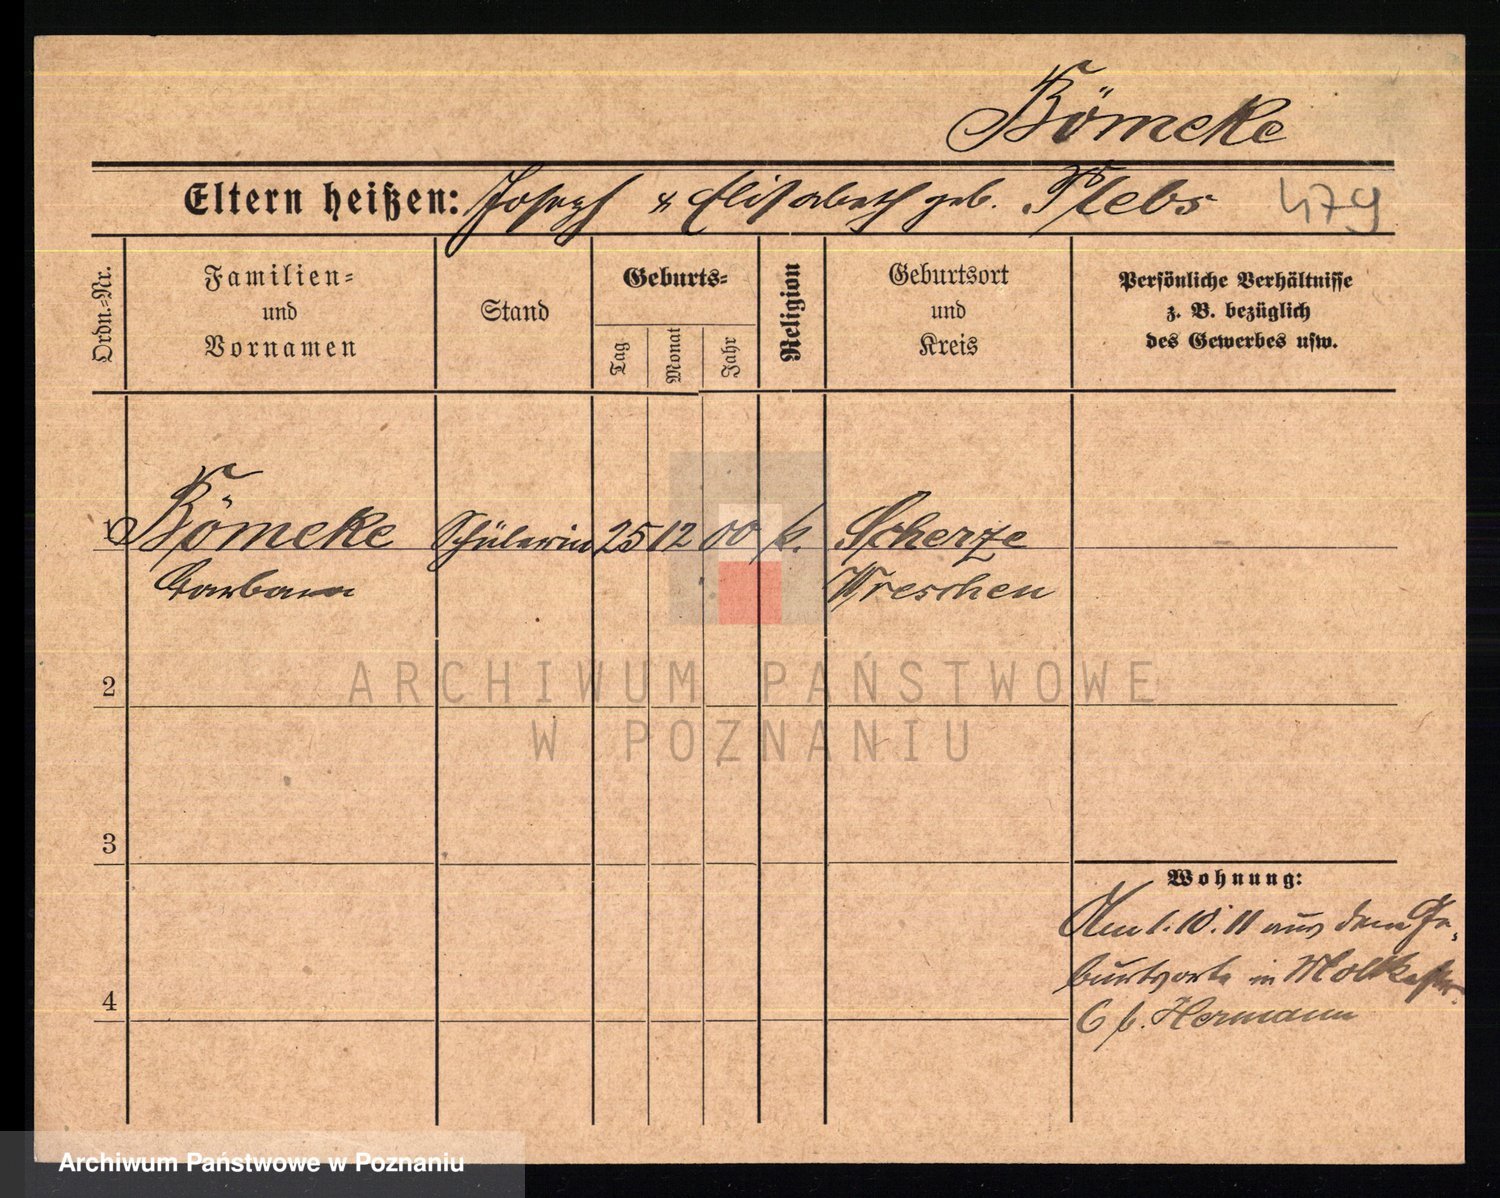 Bömeke
Eltern heißen: Joseph & Elisabeth geb. Plebs 479
Ordn.-Nr.
Familien-
und
Vornamen
Stand
Geburts-
Tag
Monat
Jahr
Religion
Geburtsort
und
Kreis
Persönliche Verhältnisse
z. B. bezüglich
des Gewerbes usw.
1 Bömeke Schülerin 25 12 00 k. Scherze
Barbara Wreschen
ARCHIWUM PAŃSTWOWE
W POZNANIU
2
3
4
Wohnung:
Am 1.10.11 aus dem Ge-
burtsorte in Moltkestr.
6 b. Hermann
Archiwum Państwowe w Poznaniu